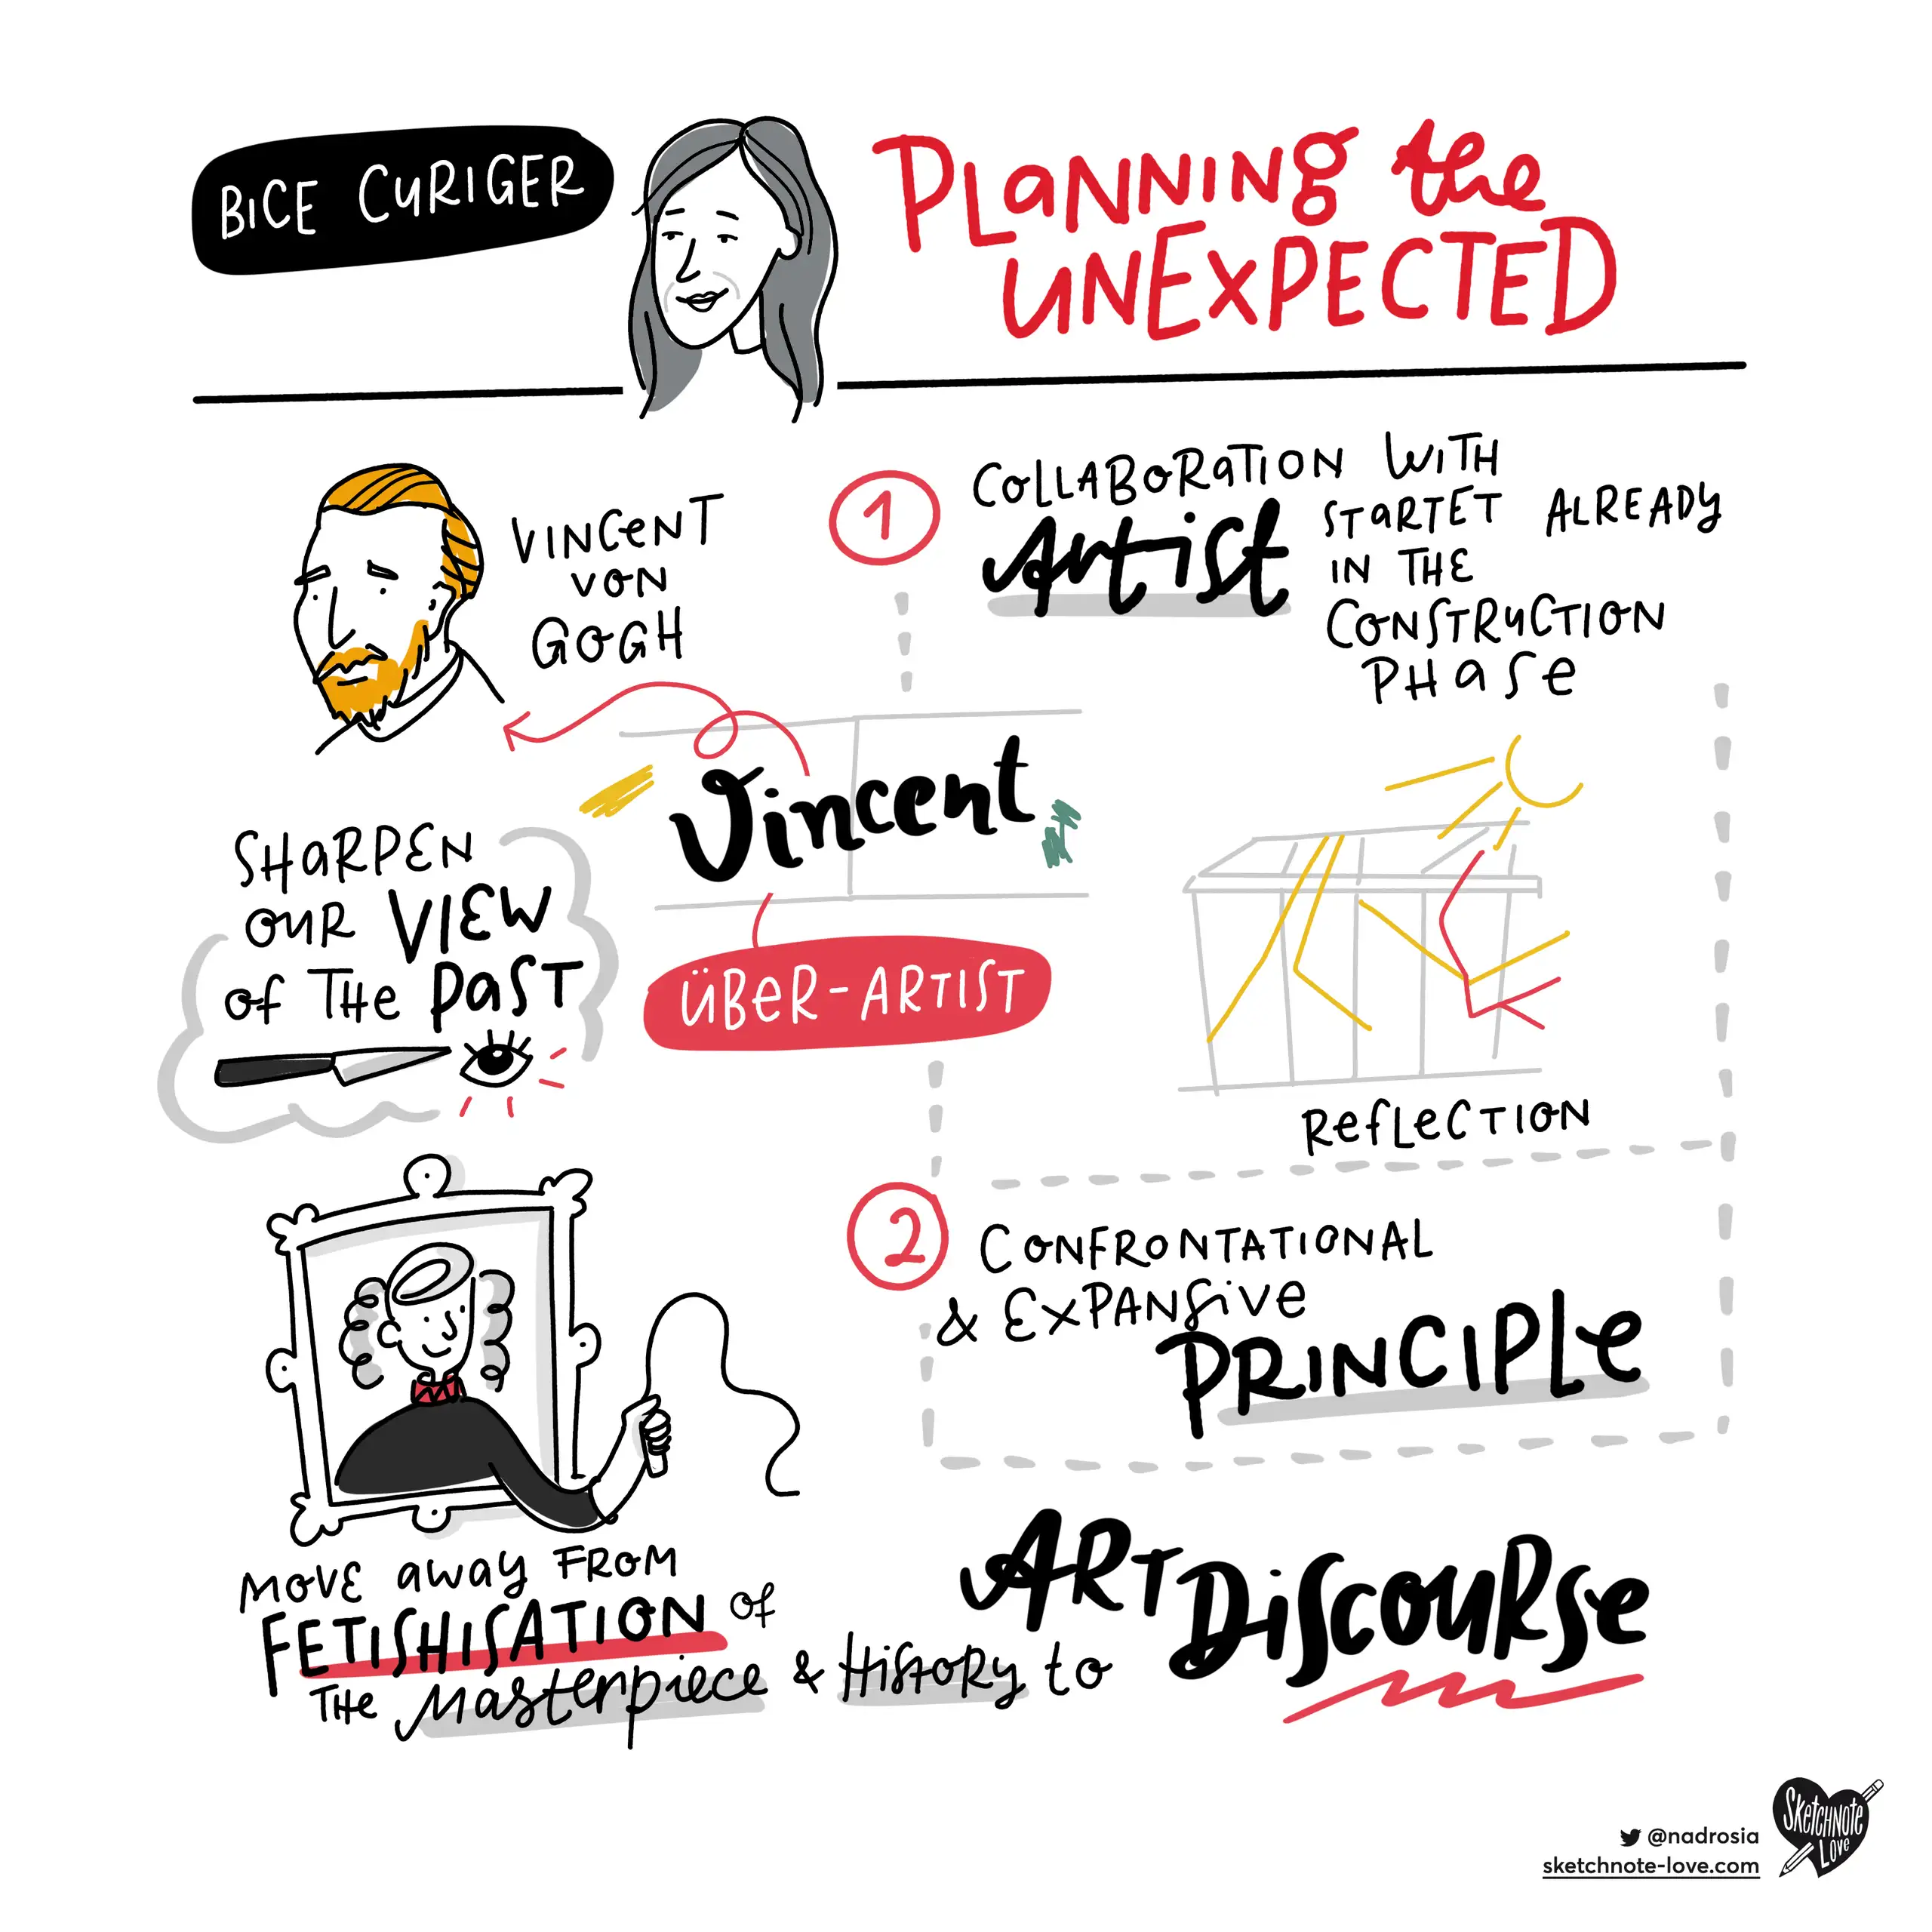 BICE CURIGER
PLANNING the
UNEXPECTED
VINCENT
VON
GOGH
1
COLLABORATION WITH
Artist
STARTET ALREADY
IN THE
CONSTRUCTION
PHASE
Vincent
ÜBER-ARTIST
SHARPEN
OUR VIEW
OF THE PAST
REFLECTION
2
CONFRONTATIONAL
& EXPANSIVE
PRINCIPLE
MOVE AWAY FROM
FETISHISATION OF
THE Masterpiece & HISTORY to
ART DISCOURSE
@nadrosia
sketchnote-love.com
SKETCHNOTE
LOVE